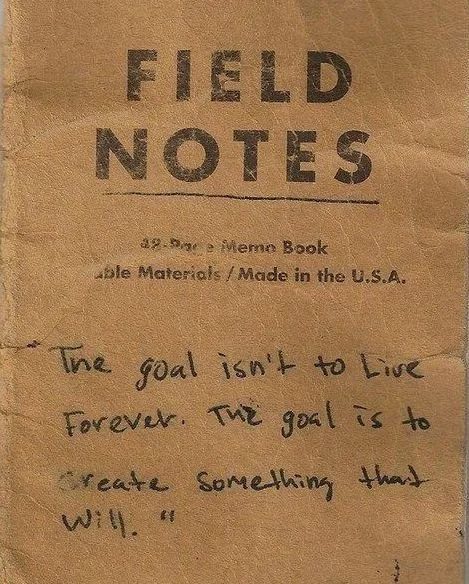 FIELD
NOTES
48-Page Memo Book
able Materials / Made in the U.S.A.
"The goal isn't to Live
Forever. The goal is to
create something that
Will. "